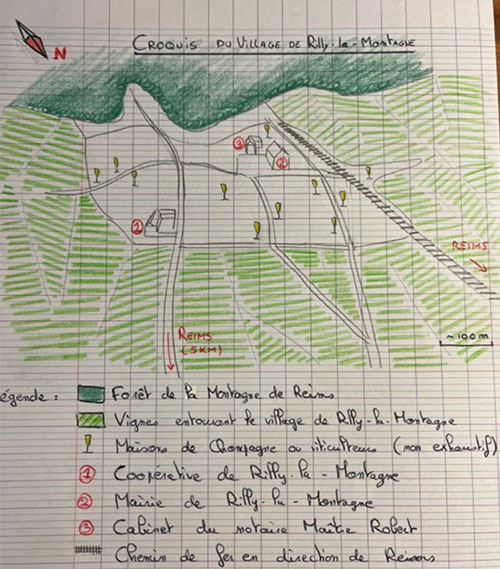 CROQUIS DU VILLAGE DE Rilly-la-MONTAGNE
N
3
2
1
REIMS
REIMS
(5KM)
~100m
égende :
Forêt de la Montagne de Reims
Vignes entourant le village de Rilly-la-Montagne
Maisons de Champagne ou viticulteurs (non exhaustif)
1 Coopérative de Rilly-la-Montagne
2 Mairie de Rilly-la-Montagne
3 Cabinet du notaire Maître Robert
Chemin de fer en direction de Reims